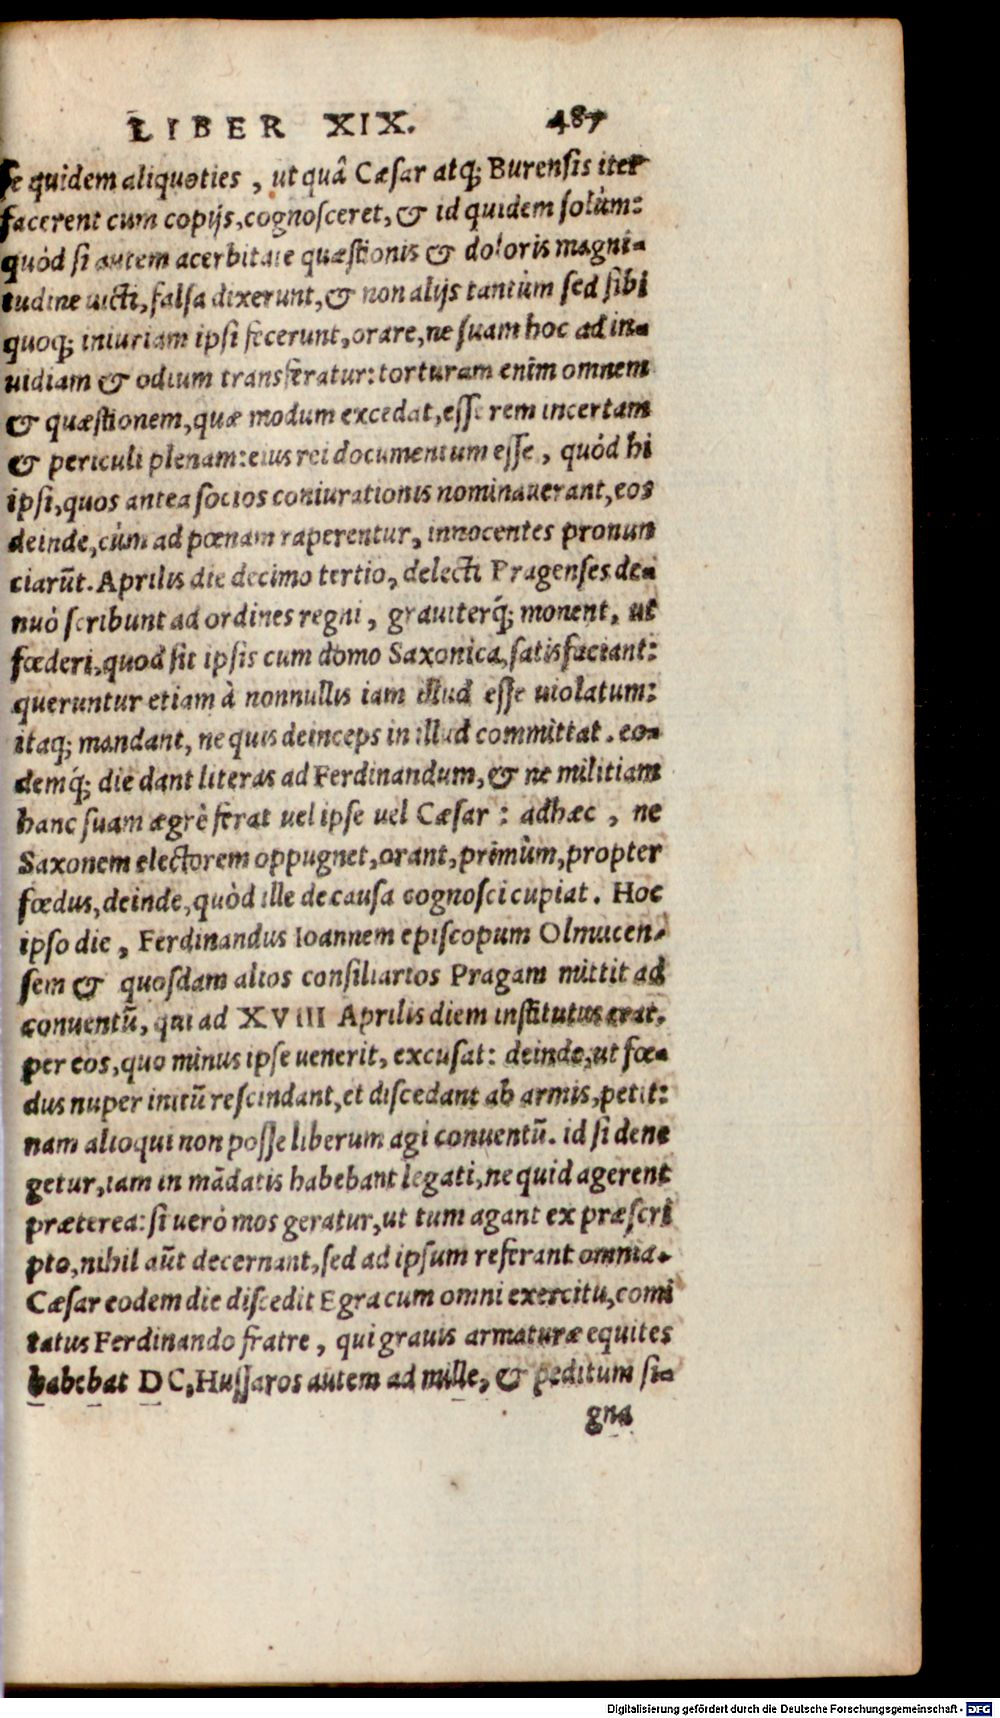 LIBER XIX. 487
se quidem aliquoties, ut quâ Cæsar atq; Burensis iter
facerent cum copijs, cognosceret, & id quidem solùm:
quòd si autem acerbitate quæstionis & doloris magni-
tudine uicti, falsa dixerunt, & non alijs tantùm sed sibi
quoq; iniuriam ipsi fecerunt, orare, ne suam hoc ad in-
uidiam & odium transferatur: torturam enim omnem
& quæstionem, quæ modum excedat, esse rem incertam
& periculi plenam: eius rei documentum esse, quòd hi
ipsi, quos antea socios coniurationis nominauerant, eos
deinde, cùm ad pœnam raperentur, innocentes pronun
ciarūt. Aprilis die decimo tertio, delecti Pragenses de-
nuò scribunt ad ordines regni, grauiterq́; monent, ut
fœderi, quod sit ipsis cum domo Saxonica, satisfaciant:
queruntur etiam à nonnullis iam illud esse uiolatum:
itaq; mandant, ne quis deinceps in illud committat. eo-
demq́; die dant literas ad Ferdinandum, & ne militiam
hanc suam ægrè ferat uel ipse uel Cæsar: adhæc, ne
Saxonem electorem oppugnet, orant, primùm, propter
fœdus, deinde, quòd ille de causa cognosci cupiat. Hoc
ipso die, Ferdinandus Ioannem episcopum Olmucen-
sem & quosdam alios consiliarios Pragam mittit ad
conuentū, qui ad XVIII Aprilis diem institutus erat.
per eos, quo minus ipse uenerit, excusat: deinde, ut fœ-
dus nuper initū rescindant, et discedant ab armis, petit:
nam alioqui non posse liberum agi conuentū. id si dene
getur, iam in mādatis habebant legati, ne quid agerent
præterea: si uerò mos geratur, ut tum agant ex præscri
pto, nihil aūt decernant, sed ad ipsum referant omnia.
Cæsar eodem die discedit Egra cum omni exercitu, comi
tatus Ferdinando fratre, qui grauis armaturæ equites
habebat DC, Hussaros autem ad mille, & peditum si-
gna
Digitalisierung gefördert durch die Deutsche Forschungsgemeinschaft - DFG